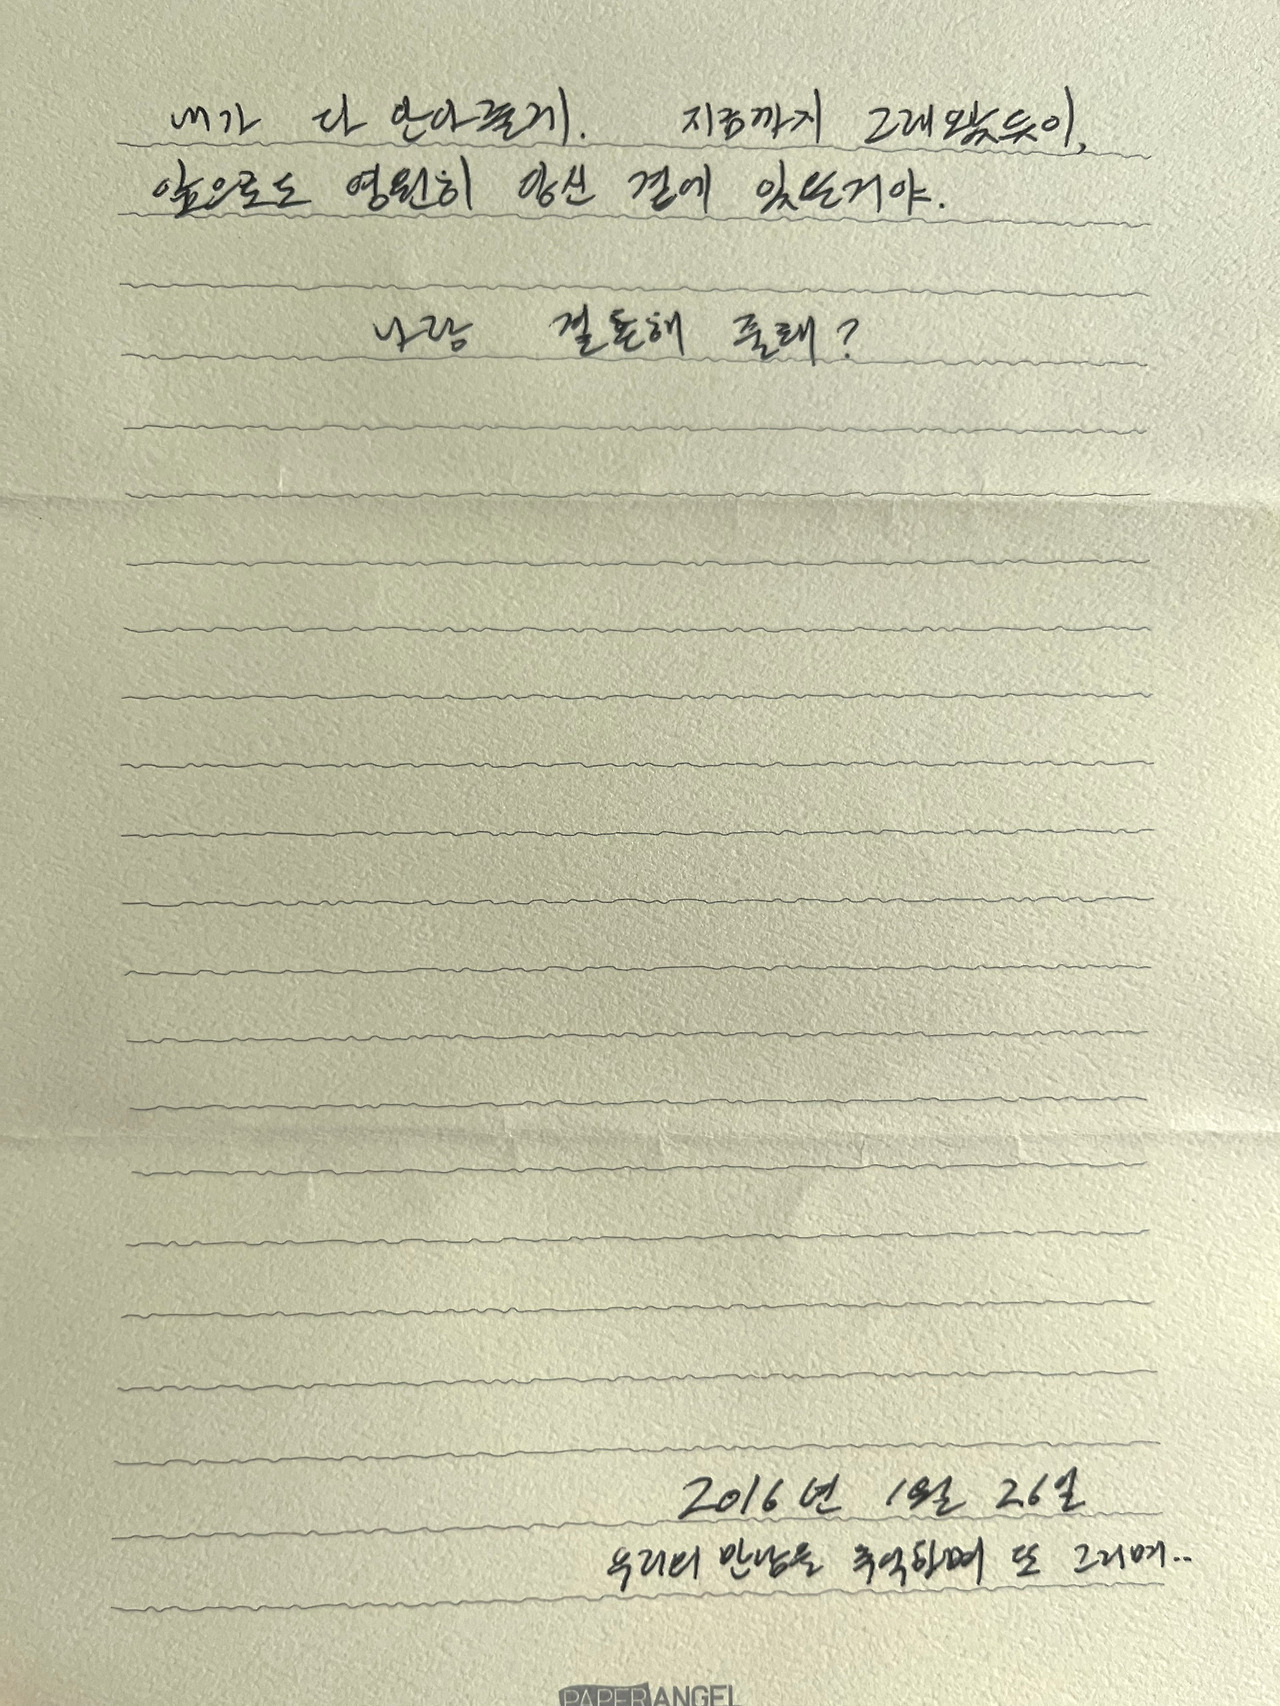 내가 다 안아줄게. 지금까지 그래왔듯이,
앞으로도 영원히 당신 곁에 있을거야.
나랑 결혼해 줄래?
2016년 1월 26일
우리의 만남을 추억하며 또 그리며..
PAPER ANGEL